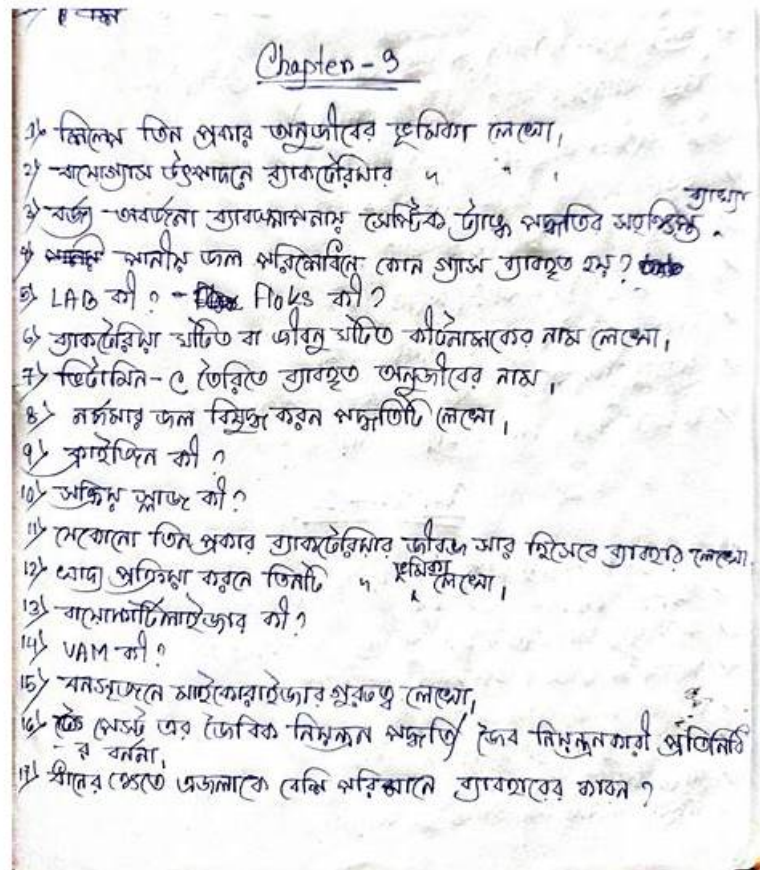 Chapter - 9
1) শিল্পে তিন প্রকার অনুজীবের ভূমিকা লেখো।
2) বায়োগ্যাস উৎপাদনে ব্যাকটেরিয়ার " " ।
ব্যাখ্যা
3) বর্জ্য আবর্জনা ব্যাবস্থাপনায় সেপ্টিক ট্যাঙ্ক পদ্ধতির সংক্ষিপ্ত
4) পানীয় জল পরিশোধনে কোন গ্যাস ব্যবহৃত হয়?
5) LAB কী? - Floks কী?
6) ব্যাকটেরিয়া ঘটিত বা জীবনু ঘটিত কীটনাশকের নাম লেখো।
7) ভিটামিন - C তৈরিতে ব্যবহৃত অনুজীবের নাম।
8) নর্দমার জল বিশুদ্ধ করন পদ্ধতিটি লেখো।
9) কী?
10) সক্রিয় স্লাজ কী?
11) যেকোনো তিন প্রকার ব্যাকটেরিয়ার জীবজ সার হিসেবে ব্যাবহার লেখো।
12) খাদ্য প্রক্রিয়া করনে তিনটি " ভূমিকা লেখো।
13) বায়োফার্টিলাইজার কী?
14) VAM কী?
15) বনসৃজনে মাইকোরাইজার গুরুত্ব লেখো।
16) পেস্ট এর জৈবিক নিয়ন্ত্রন পদ্ধতি/ জৈব নিয়ন্ত্রনকারী প্রতিনিধি
র বর্ননা।
17) ধানের ক্ষেতে এজলাকে বেশি পরিমানে ব্যাবহারের কারন?